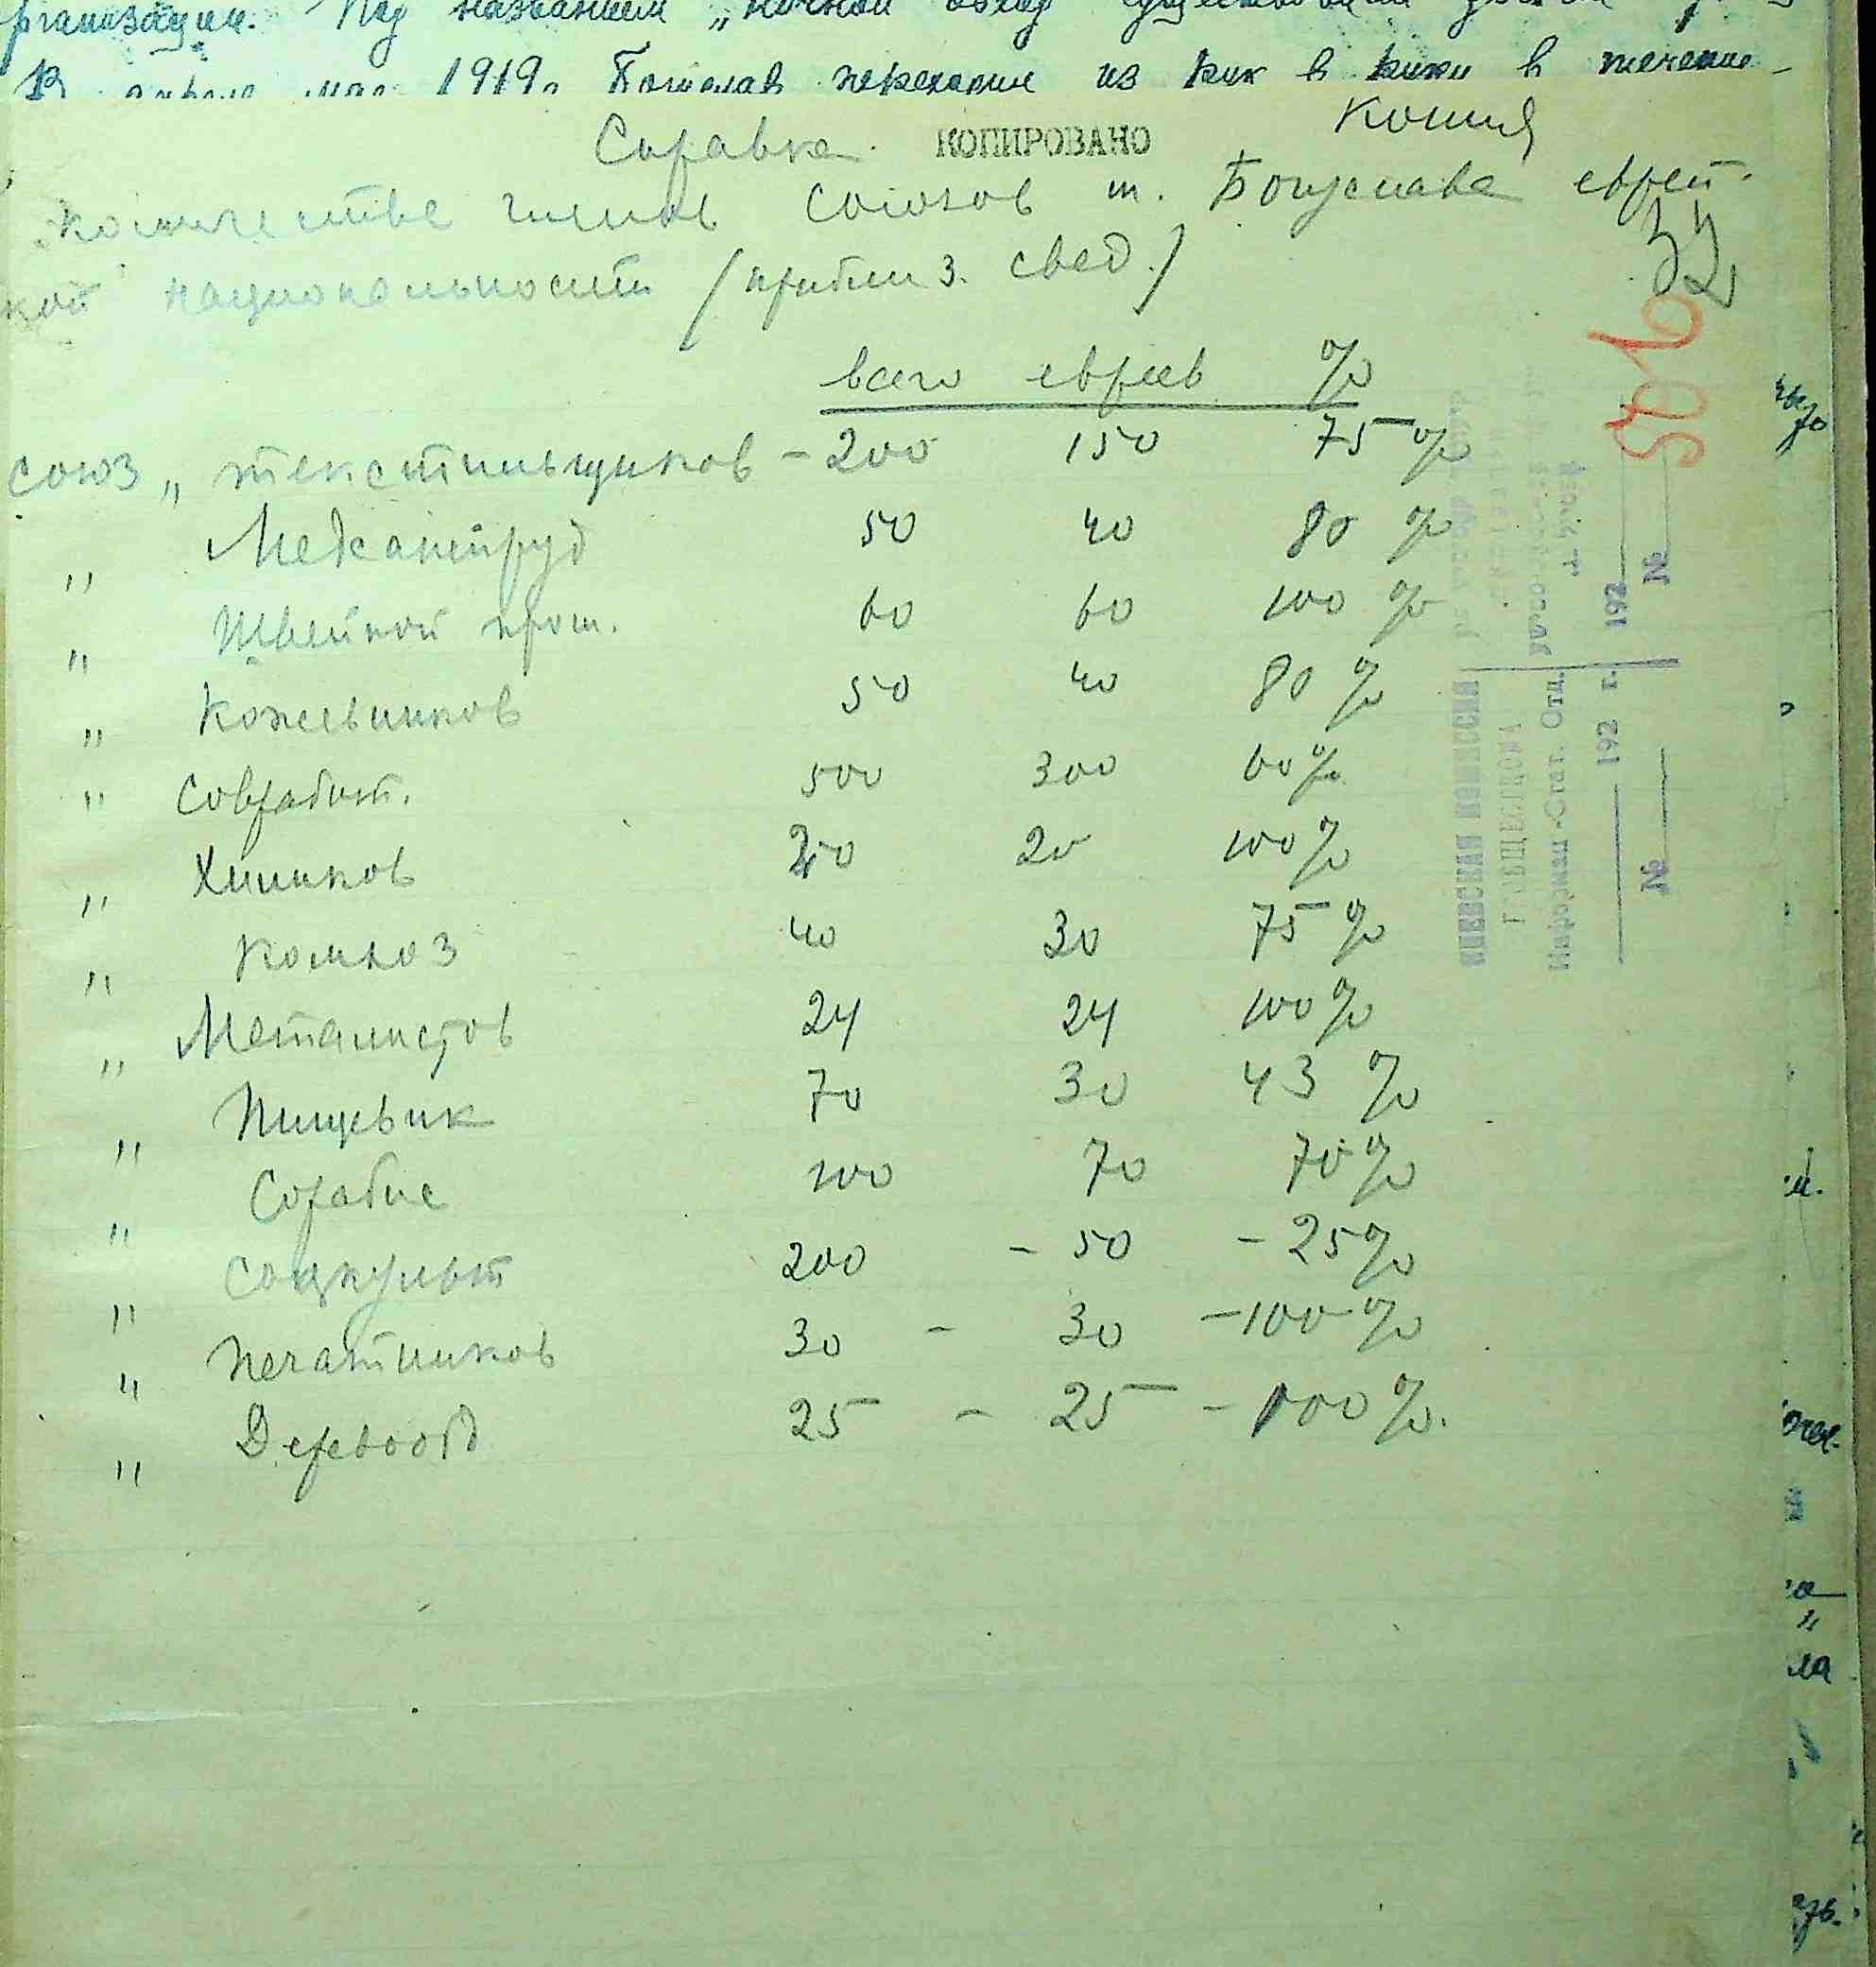 Под названием „ночной
В апреле мае 1919г Богуслав переходил из рук в руки в течение
Копия
Справка. КОПИРОВАНО
количестве членов союзов м. Богуслава еврей-
ской национальности /приблиз. свед./
32
501
всего евреев %
союз „ текстильщиков - 200 150 75%
„ Медсантруд 50 40 80%
„ Швейной пром. 60 60 100%
„ Кожевников 50 40 80%
„ Совработ. 500 300 60%
„ Химиков 20 20 100%
„ Комхоз 40 30 75%
„ Металистов 24 24 100%
„ Пищевик 70 30 43%
„ Сорабис 100 70 70%
„ Соцкульт 200 - 50 - 25%
„ печатников 30 - 30 - 100%
„ Деревообд 25 - 25 - 100%.
КИЕВСКАЯ КОМИССИЯ
Информац-Стат. Отд.
192 г. 192
№ №